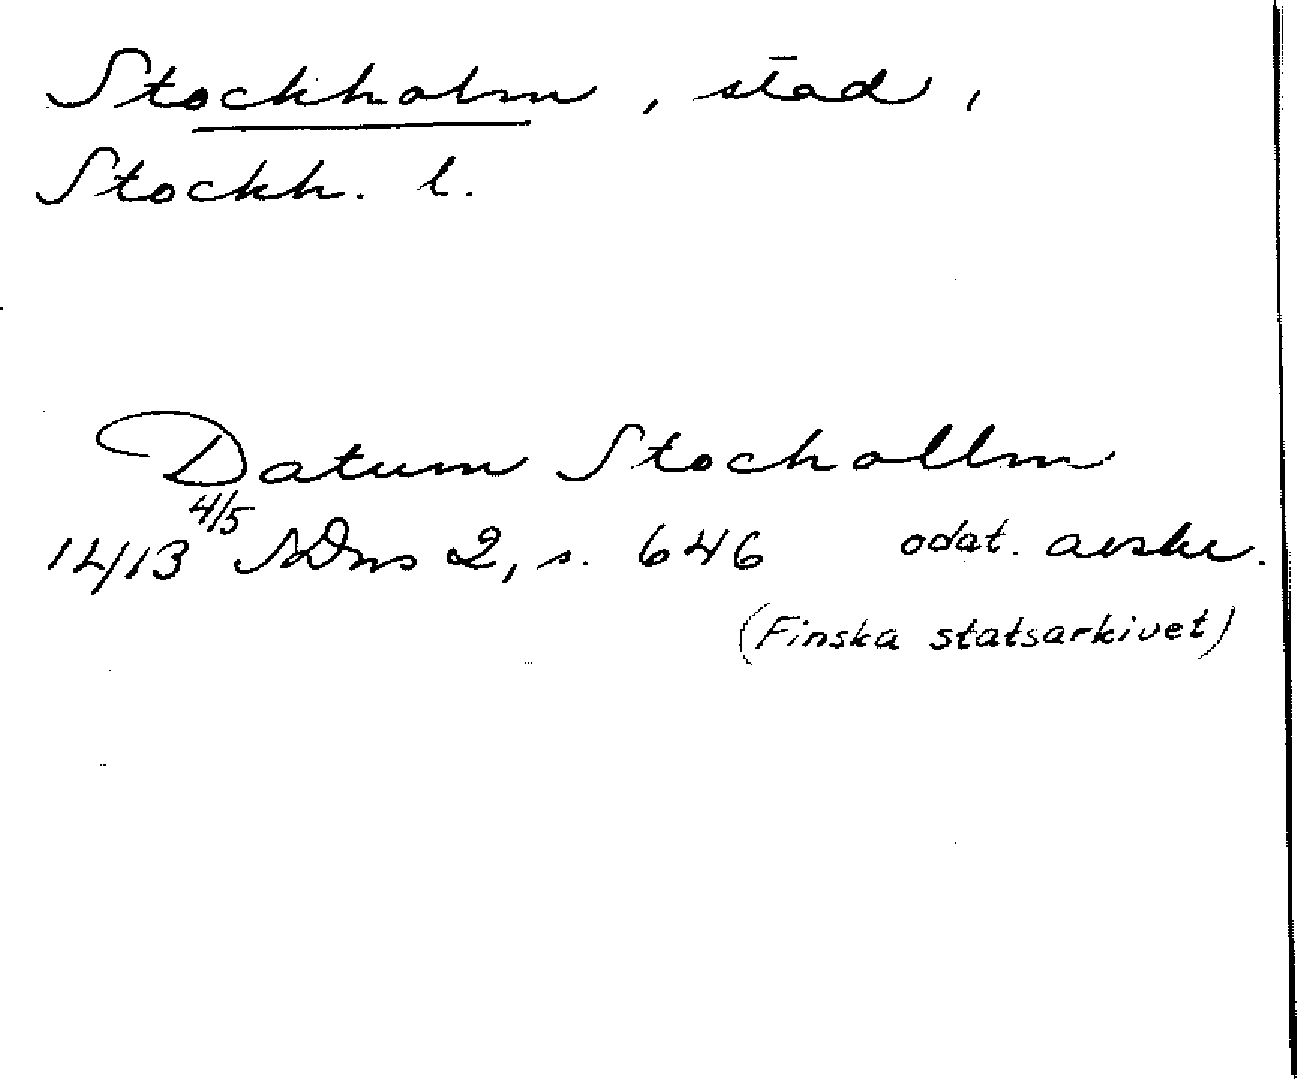 Stockholm, stad,
Stockh. l.
Datum Stochollm
14/13 4/5 SDns 2, s. 646 odat. avskr.
(Finska statsarkivet)